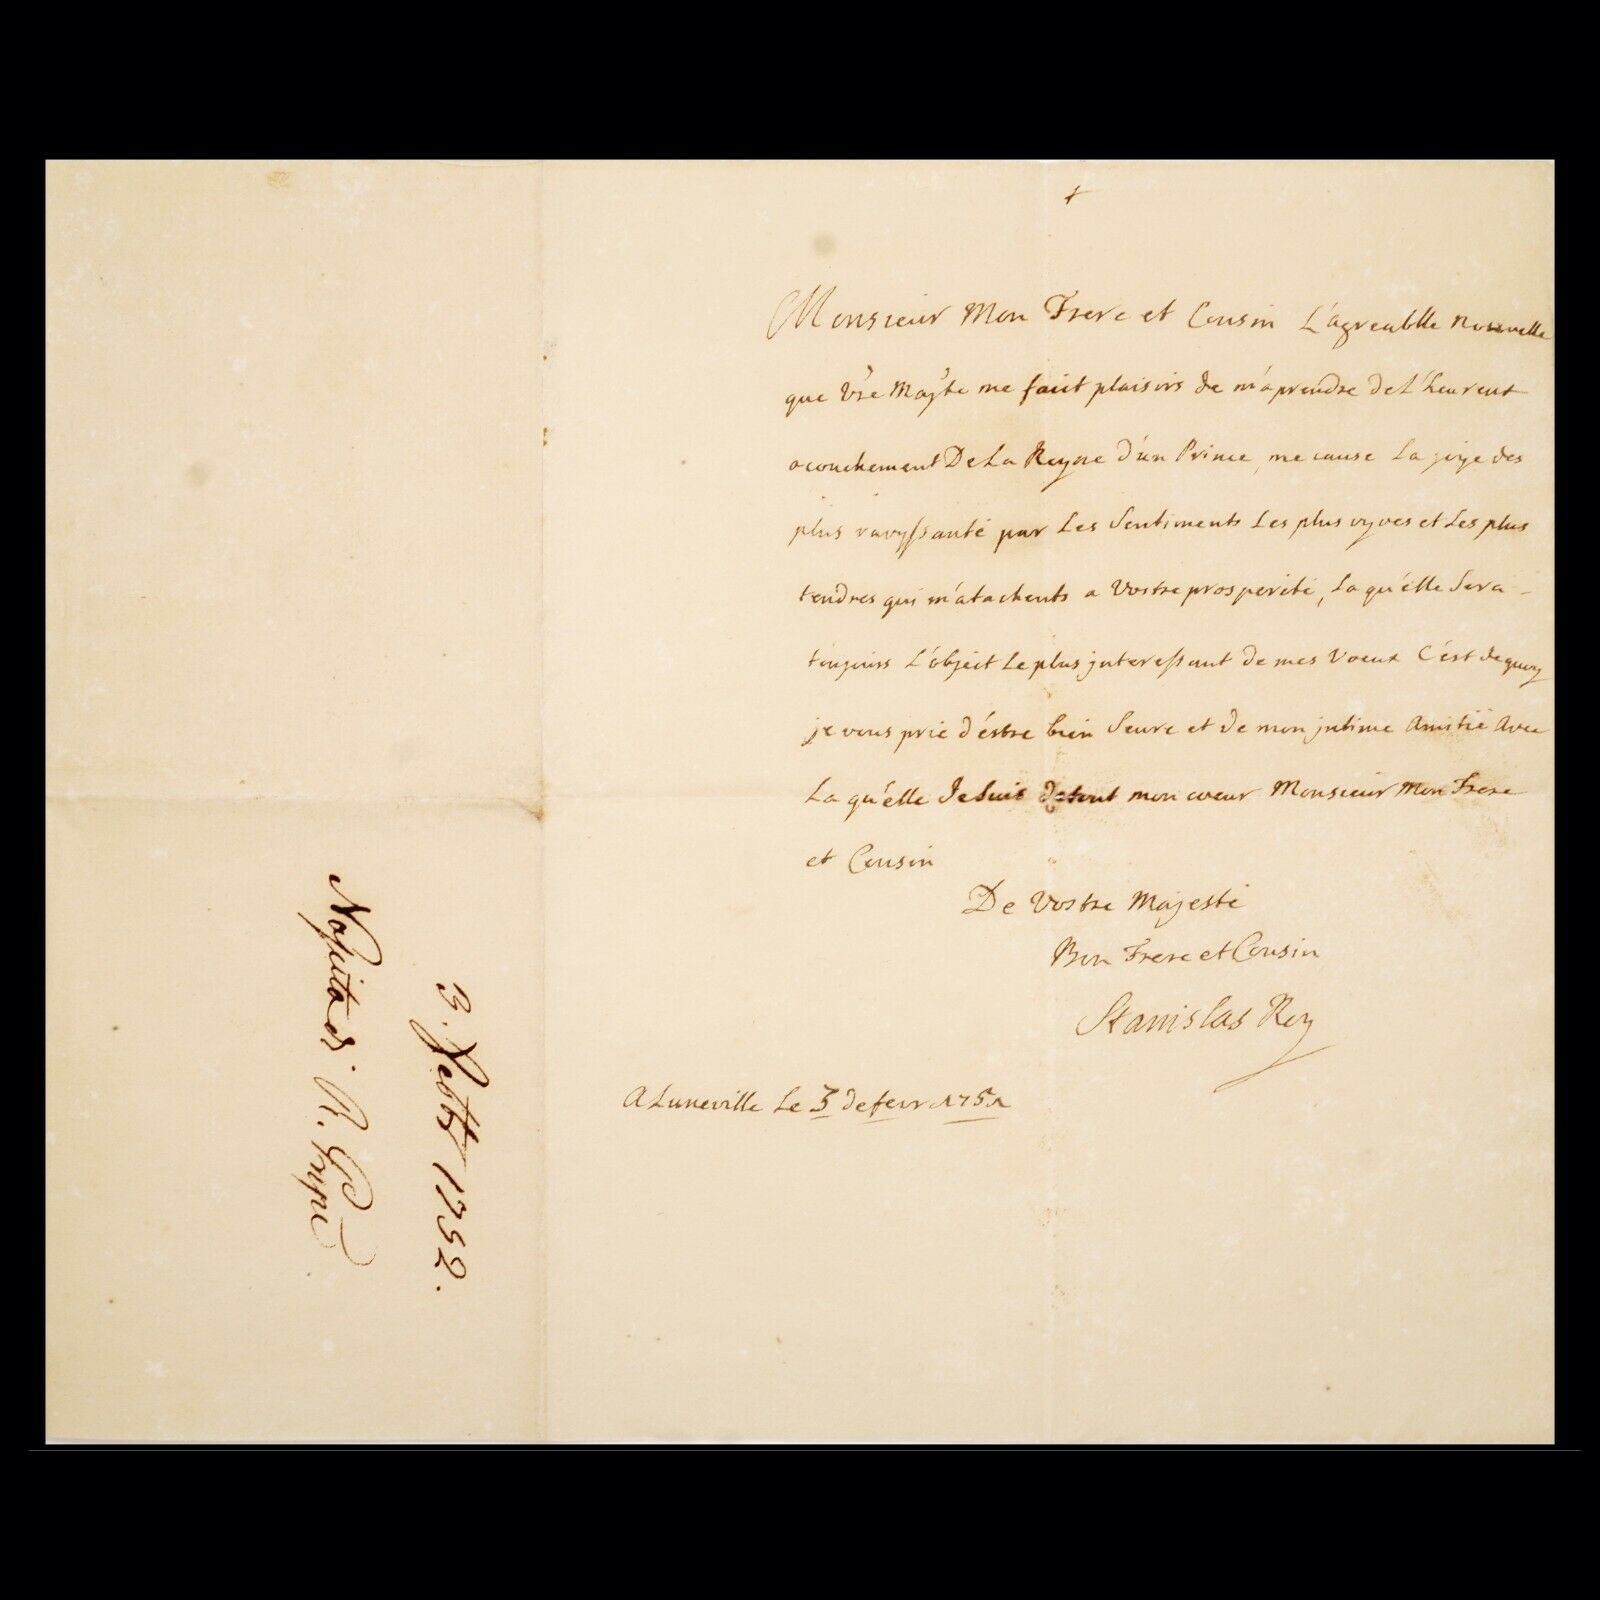 +
Monsieur Mon Frere et Cousin L'agreablle Nouvelle
que Vre Majte me fait plaisirs de m'aprendre de L'heureut
acouchement De La Reyne d'un Prince, me cause La joye des
plus ravyssanté par Les Sentiments Les plus vyves et Les plus
tendres qui m'atachents a Vostre prosperité, La qu'elle Sera
toujours L'object Le plus interessant de mes Voeux C'est de quoy
je vous prie d'éstre bien Seure et de mon intime Amitié Avec
La qu'elle Je Suis de tout mon coeur Monsieur Mon Frere
et Cousin
De Vostre Majesté
Bon Frere et Cousin
Stanislas Roy
A Luneville Le 3 de fevr 1751
3. 1752.
R.